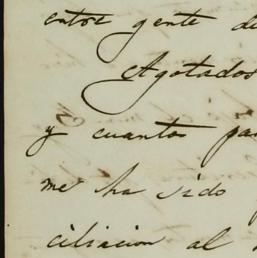 entre gente de
Agotados
y cuantos pa
me ha sido
ciliacion al